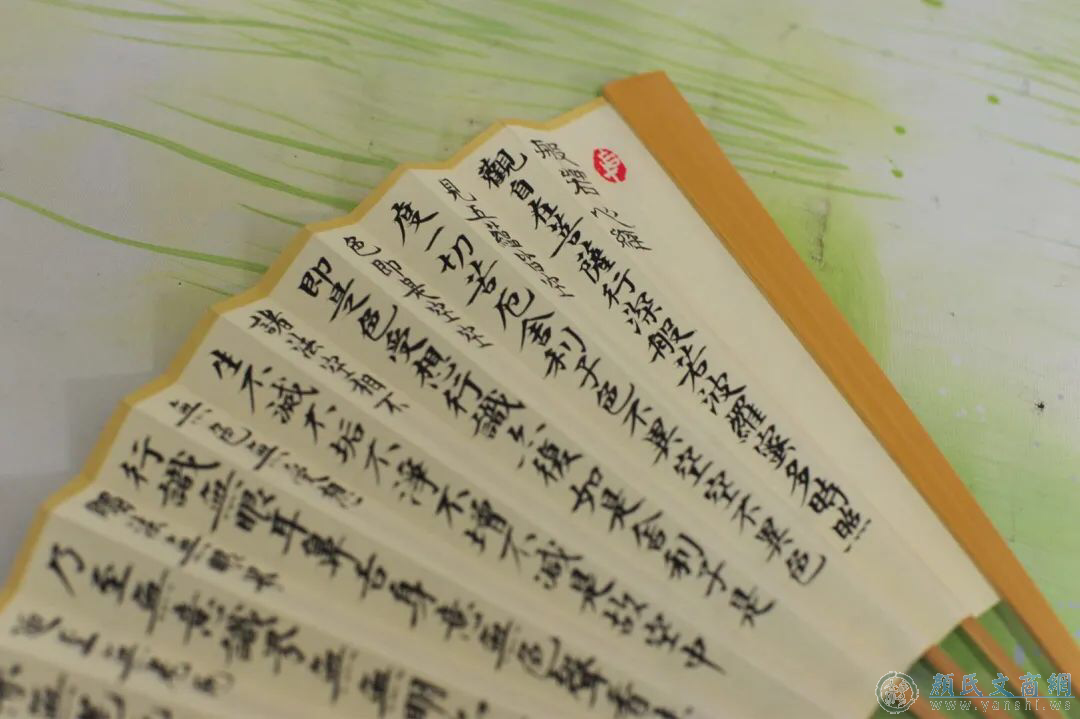 般若心經
觀自在菩薩行深般若波羅蜜多時照
見五蘊皆空
度一切苦厄舍利子色不異空空不異色
色即是空空
即是色受想行識亦復如是舍利子是
諸法空相不
生不滅不垢不淨不增不減是故空中
無色無受想
行識無眼耳鼻舌身意無色聲香
觸法無眼界
乃至無意識界無無明
乃至無老死
亦無老
顏氏文商網
www.yanshi.ws